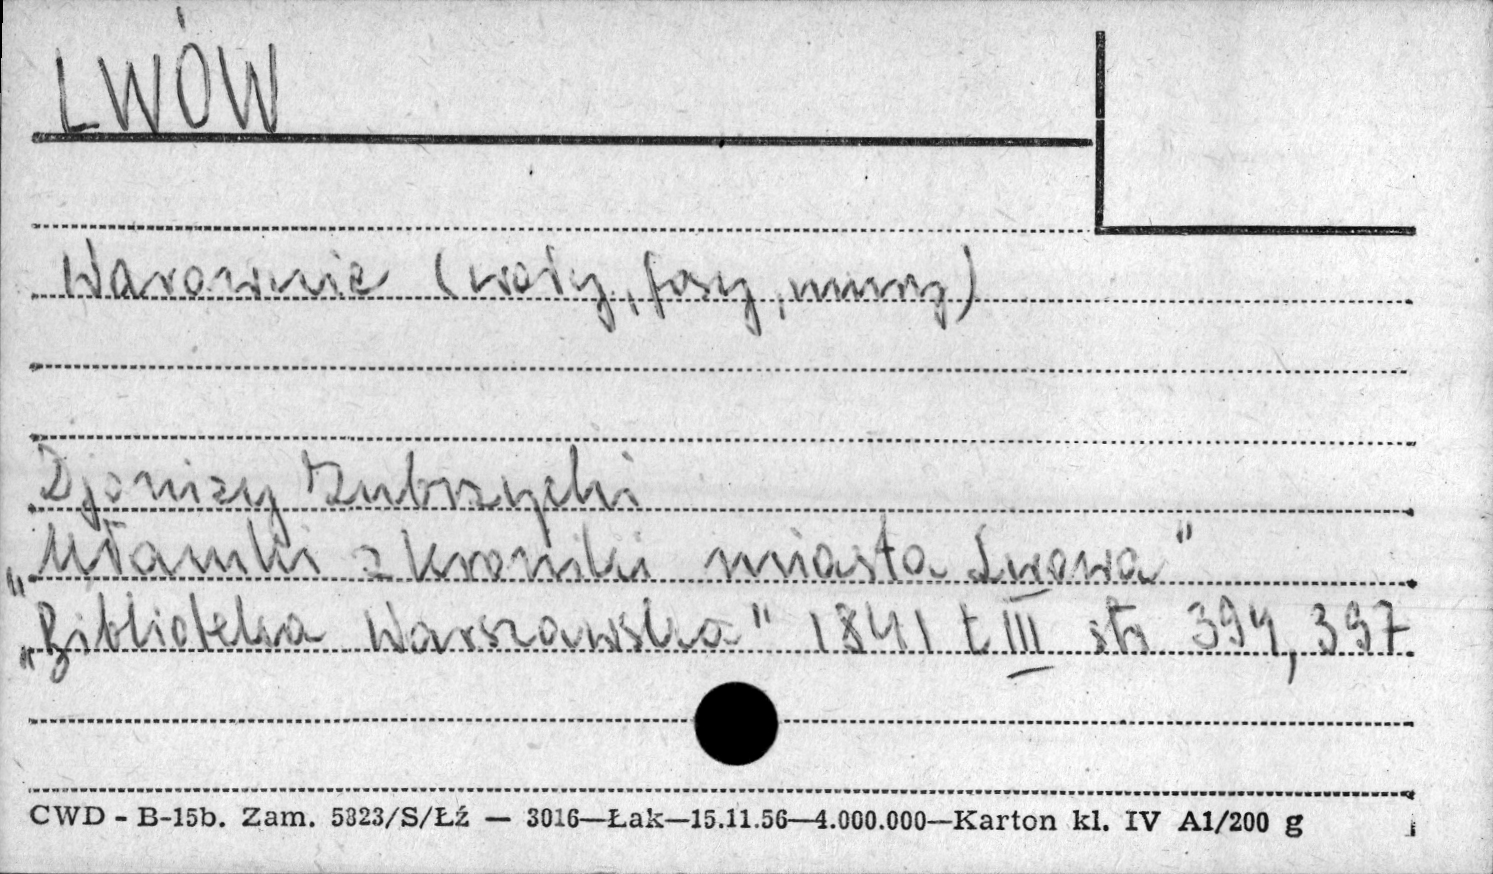 LWÓW
Warownie (wały, fosy, mury)
Djonizy Zubrzycki
„Ułamki z kroniki miasta Lwowa"
„Biblioteka Warszawska" 1841 t III str 394, 397
CWD - B-15b. Zam. 5823/S/Łź — 3016—Łak—15.11.56—4.000.000—Karton kl. IV A1/200 g